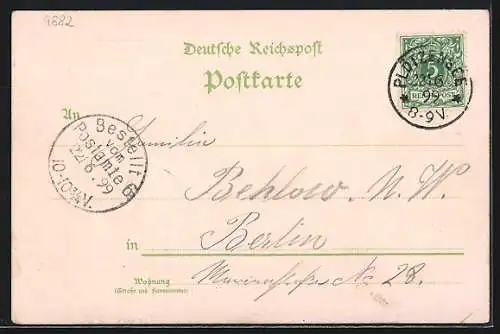 9882
Deutsche Reichspost
Postkarte
PLÖTZENSEE
22.6
99
8-9V.
5
REICHSPOST
An
Familie
Bestellt
vom
Postamte
22/6.99
Behlow. N. W.
in Berlin
Wohnung
(Straße und Hausnummer)
No 28.